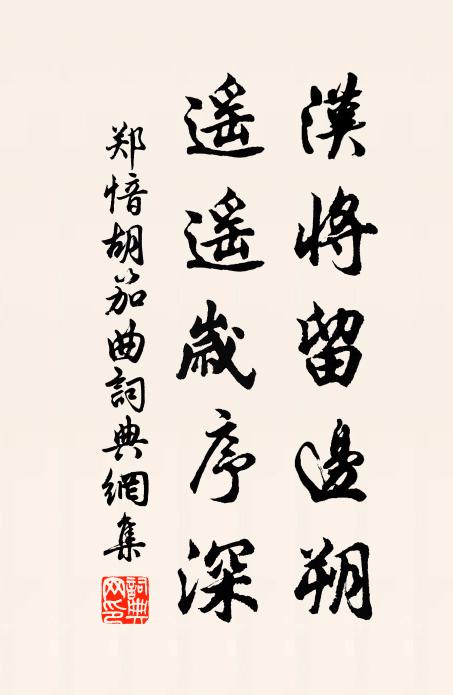 漢將留邊朔
遥遥歲序深
郑愔胡笳曲詞典網集
詞典網印